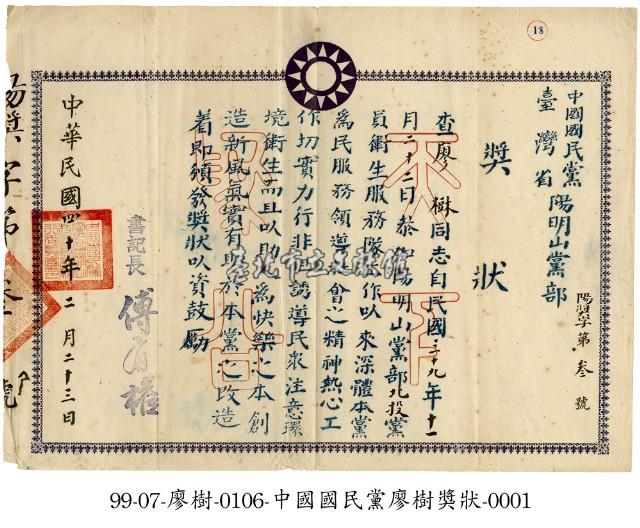 18
中國國民黨
臺灣省陽明山黨部
獎狀
陽獎字第叁號
查廖樹同志自民國三十九年十一
月二十二日恭加陽明山黨部北投黨
員衛生服務隊工作以來深體本黨
為民服務領導社會之精神熱心工
作切實力行非但誘導民眾注意環
境衛生而且以助人為快樂之本創
造新風氣實有助於本黨之改造
着即頒發獎狀以資鼓勵
天下為公
書記長
中華民國四十年二月二十三日
陽獎字第叁號
臺北市立文獻館
99-07-廖樹-0106-中國國民黨廖樹獎狀-0001